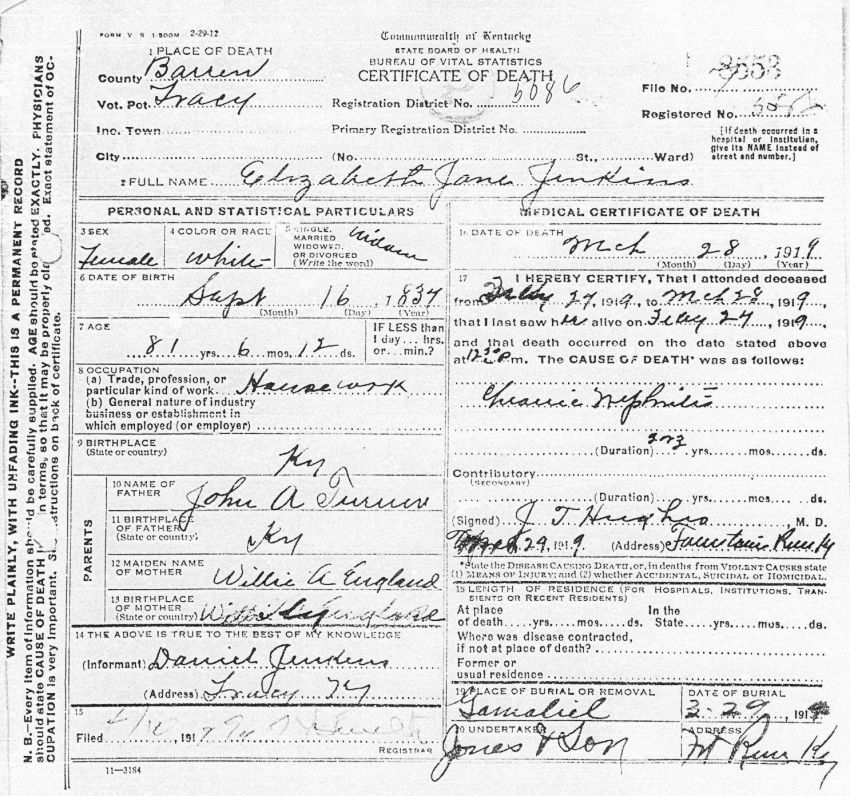 FORM V S 1-500M 2-29-12
Commonwealth of Kentucky
STATE BOARD OF HEALTH
BUREAU OF VITAL STATISTICS
CERTIFICATE OF DEATH
1 PLACE OF DEATH
County Barren
Vot. Pct. Tracy
Registration District No. 5086
File No.
Inc. Town
Primary Registration District No.
Registered No.
[If death occurred in a hospital or institution, give its NAME instead of street and number.]
City (No. St., Ward)
2 FULL NAME Elizabeth Jane Jenkins
PERSONAL AND STATISTICAL PARTICULARS
3 SEX
Female
4 COLOR OR RACE
White
5 SINGLE, MARRIED WIDOWED, OR DIVORCED (Write the word)
6 DATE OF BIRTH
Sept 16, 1837
(Month) (Day) (Year)
7 AGE
81 yrs. 6 mos. 12 ds.
IF LESS than 1 day... hrs. or... min.?
8 OCCUPATION
(a) Trade, profession, or particular kind of work House work
(b) General nature of industry
business or establishment in
which employed (or employer)
9 BIRTHPLACE
(State or country)
Ky
PARENTS
10 NAME OF FATHER
John A Turner
11 BIRTHPLACE OF FATHER (State or country)
Ky
12 MAIDEN NAME OF MOTHER
Willie A England
13 BIRTHPLACE OF MOTHER (State or country)
14 THE ABOVE IS TRUE TO THE BEST OF MY KNOWLEDGE
(Informant) Daniel Jenkins
(Address) Tracy Ky
15
Filed 191
REGISTRAR
11—3184
MEDICAL CERTIFICATE OF DEATH
16 DATE OF DEATH
Mch 28, 1919
(Month) (Day) (Year)
17 I HEREBY CERTIFY, That I attended deceased
from Feby 27, 1919, to Mch 28, 1919
that I last saw her alive on Feby 27, 1919
and that death occurred on the date stated above
at 12 30 Pm. The CAUSE OF DEATH* was as follows:
Chronic Nephritis
(Duration) yrs. mos. ds.
Contributory
(SECONDARY)
mos. ds.
(Signed) J T Hughes, M. D.
29, 1919 (Address) Fountain Run Ky
*State the DISEASE CAUSING DEATH, or, in deaths from VIOLENT CAUSES state
(1) MEANS OF INJURY; and (2) whether ACCIDENTAL, SUICIDAL or HOMICIDAL.
18 LENGTH OF RESIDENCE (FOR HOSPITALS, INSTITUTIONS, TRANSIENTS OR RECENT RESIDENTS)
At place In the
of death yrs. mos. ds. State yrs. mos. ds.
Where was disease contracted,
if not at place of death?
Former or
usual residence
19 PLACE OF BURIAL OR REMOVAL
Gamaliel
DATE OF BURIAL
3-29, 1919
20 UNDERTAKER
Jones & Son
ADDRESS
Ft Run Ky
WRITE PLAINLY, WITH UNFADING INK--THIS IS A PERMANENT RECORD
N. B.—Every item of information should be carefully supplied. AGE should be stated EXACTLY. PHYSICIANS
should state CAUSE OF DEATH in terms, so that it may be properly Exact statement of OC-
CUPATION is very important. instructions on back of certificate.